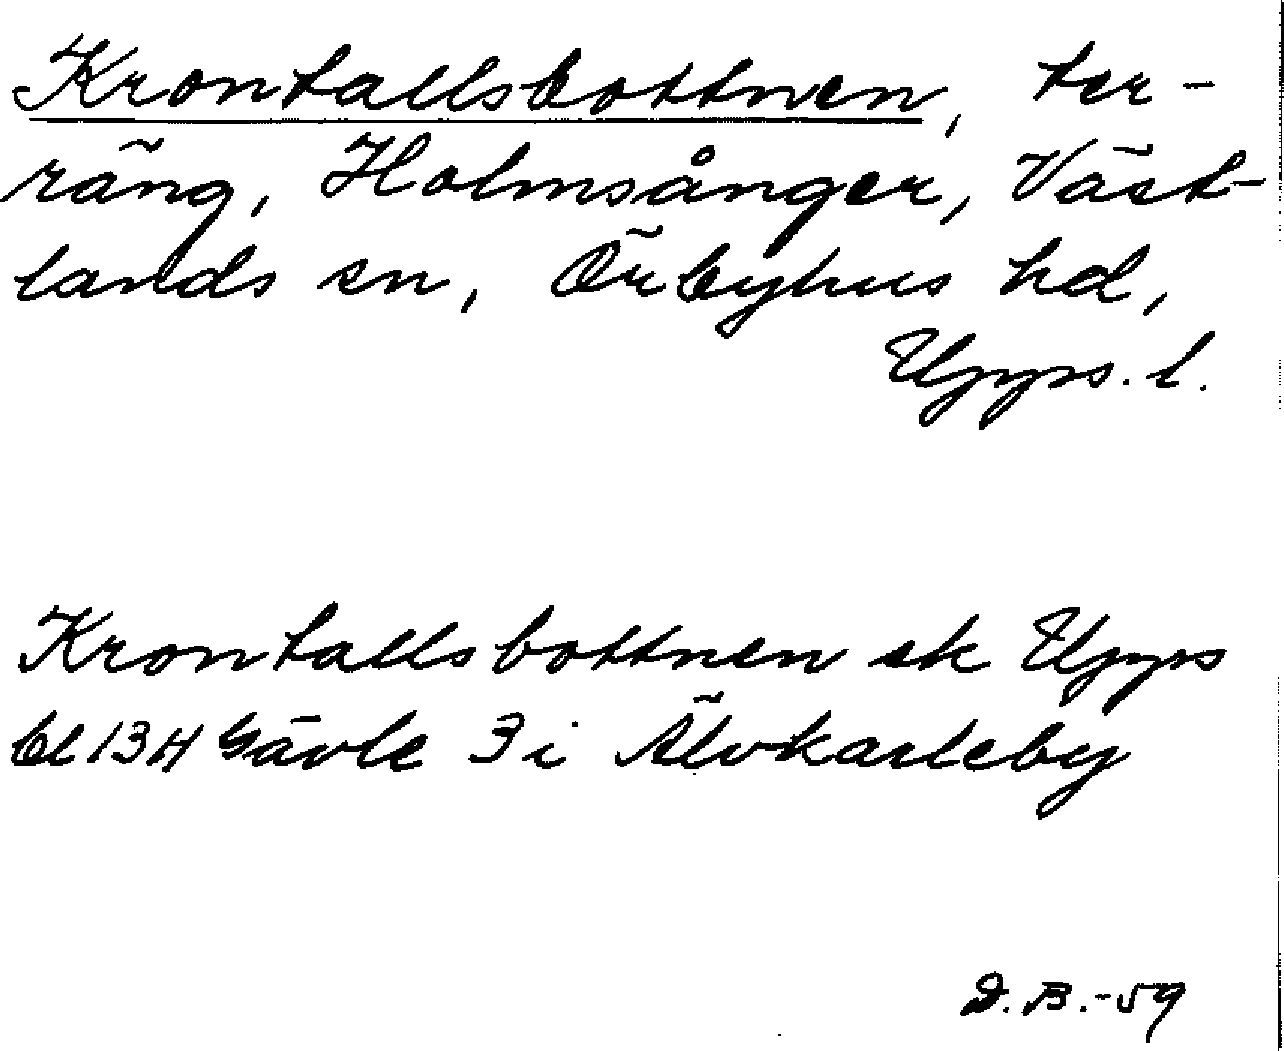 Krontallsbottnen, ter-
räng, Holmsånger, Väst-
lands sn, Örbyhus hd,
Upps. l.
Krontallsbottnen ek Upps
bl 13H Gävle 3i Älvkarleby
D.B.-59